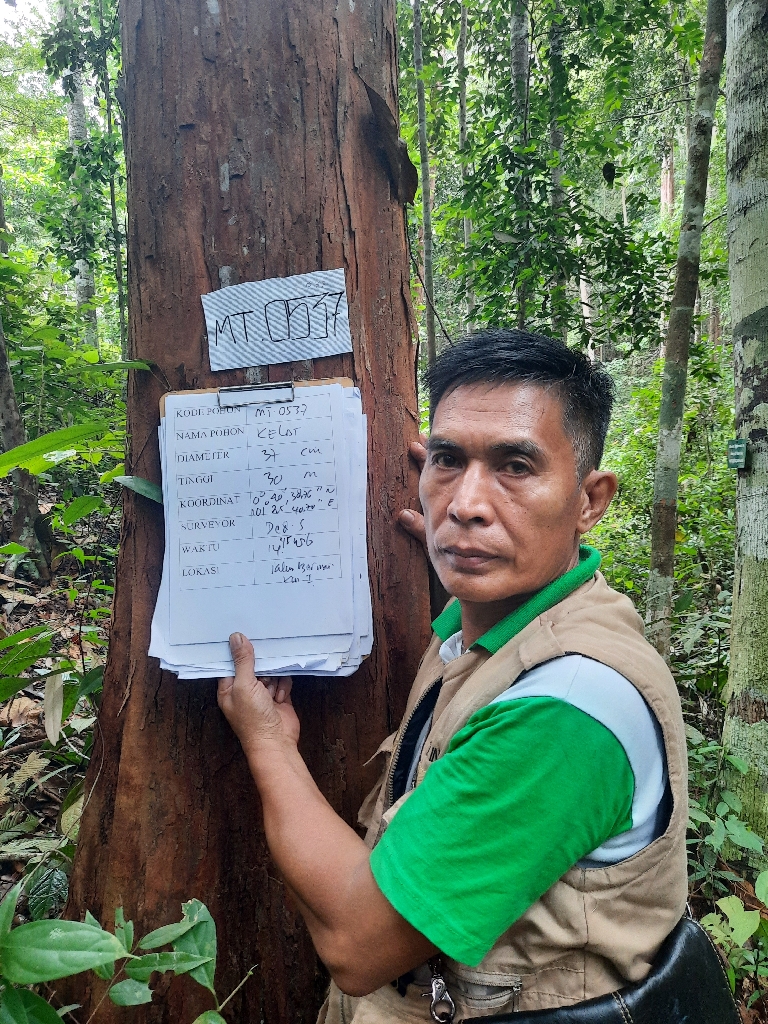 MT.0537
KODE POHON MT 0537
NAMA POHON KELAT
DIAMETER 37 cm
TINGGI 30 m
KOORDINAT 0° 40' 38.76" N
101 25 40.70" E
SURVEYOR S
WAKTU
LOKASI Jalur
Km I